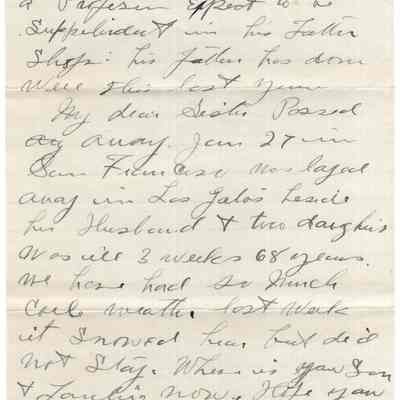 a Profesin Expect to be
Suppelindent in his Father
Shop: his father has don
well this last year
My dear Sister Passed
away Jan 27 in
San Francisco was layed
away in Los Gatos beside
his Husband & two daughters
Was ill 3 weeks 68 years.
We have had so much
Coale weather last Week
it Snowed hear but did
not Stay. Where is your Son
& now. Hope you